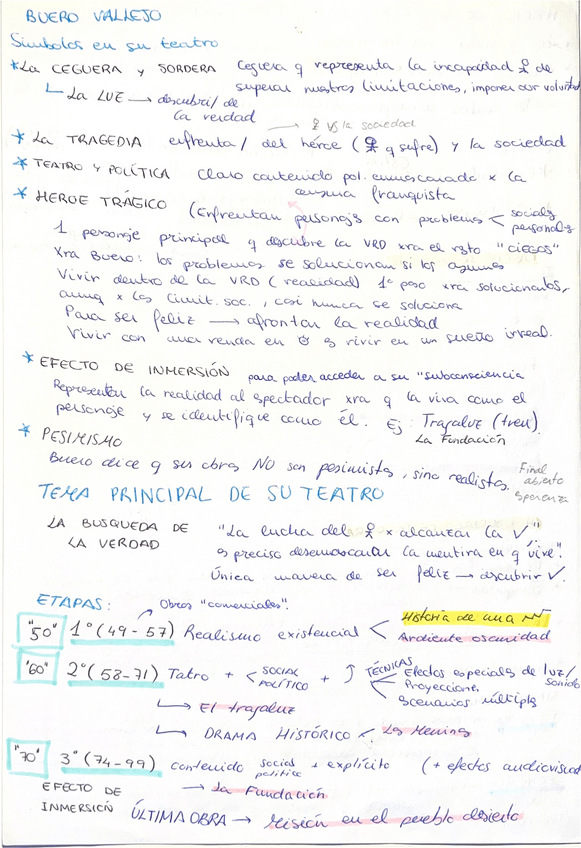 BUERO VALLEJO
Simbolos en su teatro
* La CEGUERA y SORDERA Ceguera q representa la incapacidad 웃 de
superar nuestras limitaciones, imponer our voluntad
↳ La LUZ → descubri/ de
la verdad
→ 웃 VS la sociedad
* La TRAGEDIA enfrenta/ del héroe (웃 q sufre) y la sociedad
* TEATRO Y POLÍTICA Claro contenido pol. enmascarado x la
censura franquista
* HEROE TRÁGICO (Enfrentan personajs con problemas < socials
personals
1 personaje principal q descubre la VRD xra el rsto "CIEGOS"
Xra Buero: los problemas se solucionan si los asumes
Vivir dentro de la VRD (realidad) 1º paso xra solucionarlos,
aunq x las limit. soc., casi nunca se soluciona
Para ser feliz → afrontar la realidad
Vivir con una venda en es vivir en un sueño irreal.
* EFECTO DE INMERSIÓN para poder acceder a su "subconsciencia
Representan la realidad al espectador xra q la viva como el
personaje y se identifique como él. Ej: Tragaluz (tren)
La Fundación
* PESIMISMO
Buero dice q sus obras NO son pesimistas, sino realistas. Final
abierto
speranza
TEMA PRINCIPAL DE SU TEATRO
LA BUSQUEDA DE
LA VERDAD
"La lucha del 웃 x alcanzar la V,"
es preciso desenmascarar la mentira en q vive".
Única manera de ser feliz → descubrir V.
ETAPAS: Obras "comerciales".
"50" 1º (49-57) Realismo existencial < Historia de una
Ardiente oscuridad
"60" 2º (58-71) Tatro + < SOCIAL
POLÍTICO + ↑ TÉCNICAS
Efectos especiales de luz/
sonido
Proyecciones
Scenarios múltipls
↳ El tragaluz
↳ DRAMA HISTÓRICO < Las Meninas
"70" 3º (74-99) contenido social
politico + explícito (+ efectos audiovisual
→ La Fundación
EFECTO DE
INMERSIÓN
ÚLTIMA OBRA → Misión en el pueblo desierto